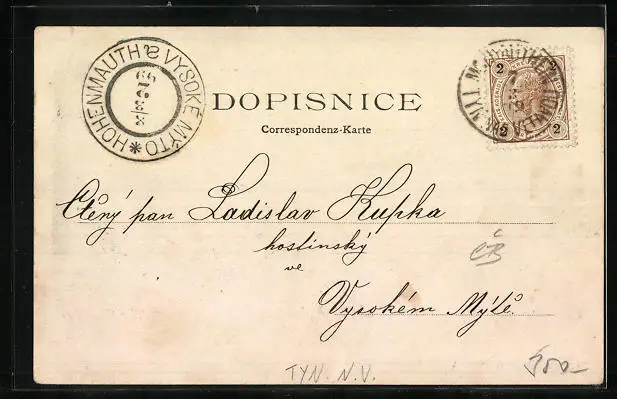 HOHENMAUTH & VYSOKÉ MÝTO
DOPISNICE
Correspondenz-Karte
2 2
2 2
Ctěný pan Ladislav Kupka
hostinský
ve
Vysokém Mýtě
ČB
TYN. N.V.